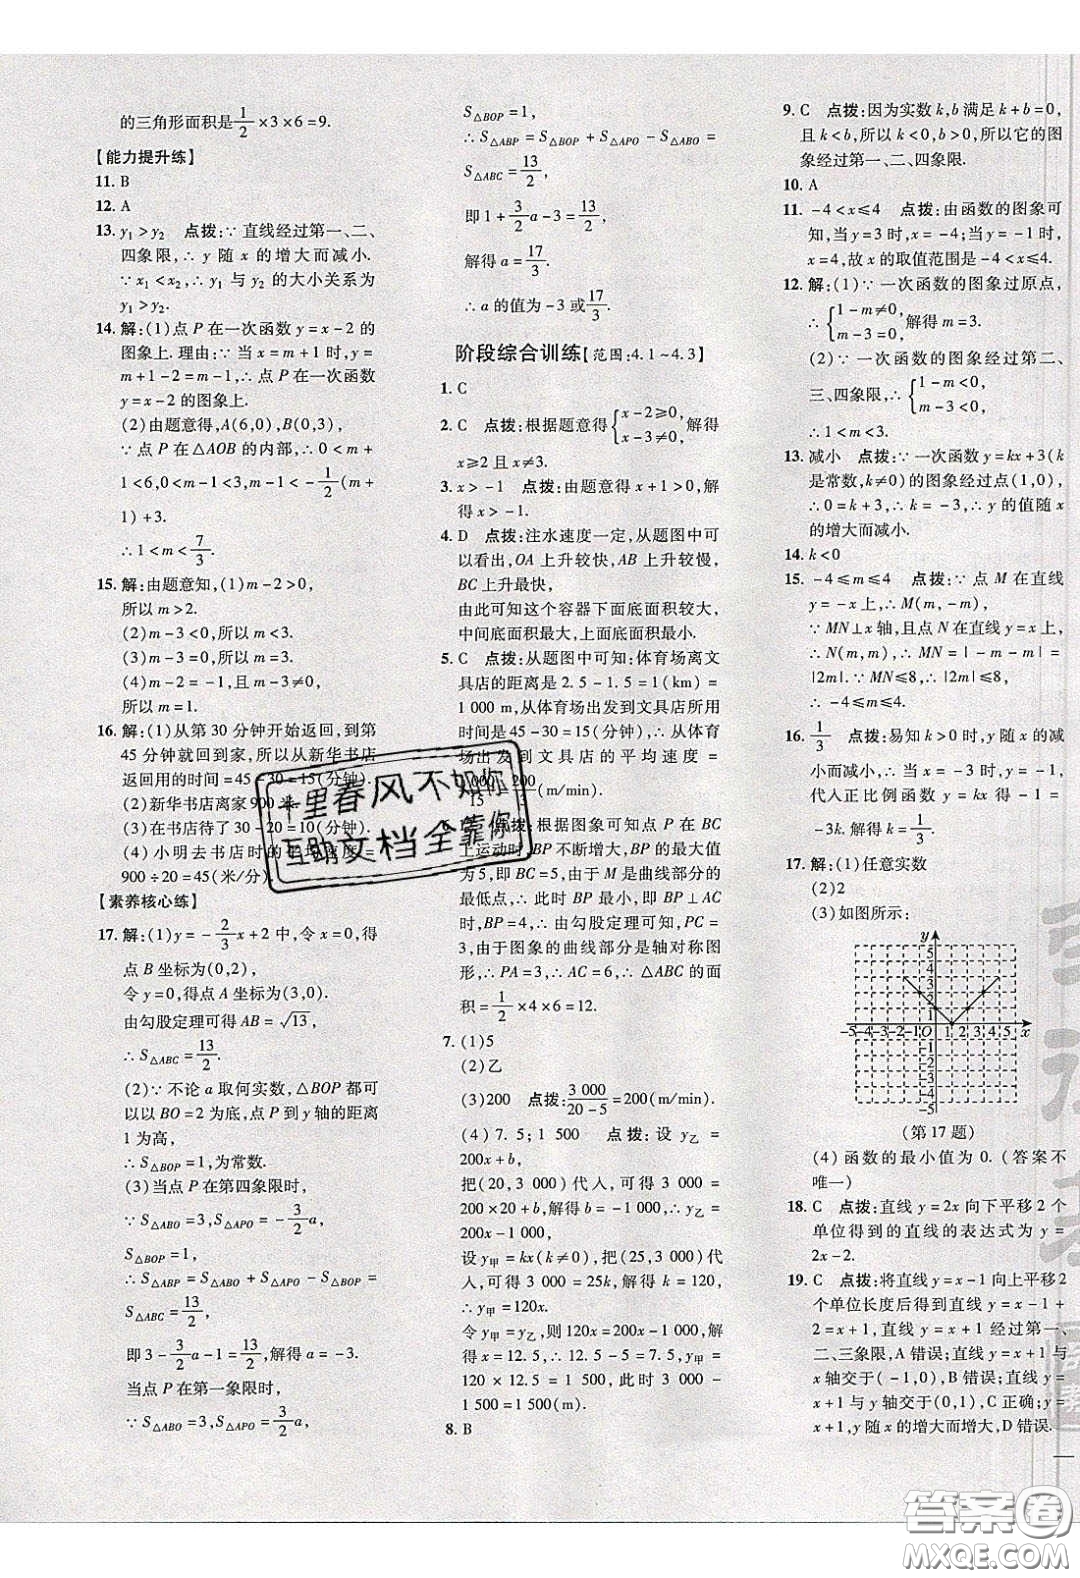 的三角形面积是1/2×3×6=9.
【能力提升练】
11. B
12. A
13. y₁>y₂ 点拨:∵直线经过第一、二、
四象限,∴y 随 x 的增大而减小.
∵x₁<x₂,∴y₁与 y₂的大小关系为
y₁>y₂.
14. 解:(1)点 P 在一次函数 y=x-2 的
图象上. 理由:当 x=m+1 时,y=
m+1-2=m-1,∴点 P 在一次函数
y=x-2 的图象上.
(2)由题意得,A(6,0),B(0,3),
∵点 P 在△AOB 的内部,∴0<m+
1<6,0<m-1<3,m-1<-1/2(m+
1)+3.
∴1<m<7/3.
15. 解:由题意知,(1)m-2>0,
所以 m>2.
(2)m-3<0,所以 m<3.
(3)m-3=0,所以 m=3.
(4)m-2=-1,
所以 m=1.
16. 解:(1)从第 30 分钟开始返回,到第
45 分钟就回到家,所以从新华书店
返回用的时间=45-30=15(分钟).
(2)新华书店离家900 米.
(3)在书店待了 30-20=10(分钟).
(4)小明去书店时的平均速度=
900÷20=45(米/分).
【素养核心练】
17. 解:(1)y=-2/3x+2 中,令 x=0,得
点 B 坐标为(0,2),
令 y=0,得点 A 坐标为(3,0).
由勾股定理可得 AB=√13,
∴S△ABC=13/2.
(2)∵不论 a 取何实数,△BOP 都可
以以 BO=2 为底,点 P 到 y 轴的距离
1 为高,
∴S△BOP=1,为常数.
(3)当点 P 在第四象限时,
∵S△ABO=3,S△APO=-3/2a,
S△BOP=1,
∴S△ABP=S△ABO+S△APO-S△BOP=
S△ABC=13/2,
即 3-3/2a-1=13/2,解得 a=-3.
当点 P 在第一象限时,
∵S△ABO=3,S△APO=3/2a,
S△BOP=1,
∴S△ABP=S△BOP+S△APO-S△ABO=
S△ABC=13/2,
即 1+3/2a-3=13/2,
解得 a=17/3.
∴a 的值为-3 或17/3.
阶段综合训练【范围:4.1~4.3】
1. C
2. C 点拨:根据题意得{x-2≥0, x-3≠0,解得
x≥2 且 x≠3.
3. x>-1 点拨:由题意得 x+1>0,解
得 x>-1.
4. D 点拨:注水速度一定,从题图中可
以看出,OA 上升较快,AB 上升较慢,
BC 上升最快,
由此可知这个容器下面底面积较大,
中间底面积最大,上面底面积最小.
5. C 点拨:从题图中可知:体育场离文
具店的距离是 2.5-1.5=1(km)=
1 000 m,从体育场出发到文具店所用
时间是 45-30=15(分钟),∴从体育
场出发到文具店的平均速度=
1 000/15=200/3(m/min).
点拨:根据图象可知点 P 在 BC
上运动时 BP 不断增大,由图象可知:
点 P 从 B 向 C 运动时,BP 的最大值
为 5,即 BC=5,由于 M 是曲线部分的
最低点,∴此时 BP 最小,即 BP⊥AC
时,BP=4,∴由勾股定理可知,PC=
3,由于图象的曲线部分是轴对称图
形,∴PA=3,∴AC=6,∴△ABC 的面
积=1/2×4×6=12.
7. (1)5
(2)乙
(3)200 点拨:3 000/(20-5)=200(m/min).
(4)7.5;1 500 点拨:设 y乙=
200x+b,
把(20,3 000)代入,可得 3 000=
200×20+b,解得 b=-1 000,∴y乙=
200x-1 000,
设 y甲=kx(k≠0),把(25,3 000)代
入,可得 3 000=25k,解得 k=120,
∴y甲=120x.
令 y甲=y乙,则 120x=200x-1 000,解
得 x=12.5,∴当 x=12.5 时,y甲=
120×12.5=1 500,3 000-1 500=
1 500(m).
8. B
9. C 点拨:因为实数 k,b 满足 k+b=0,
且 k<b,所以 k<0,b>0,所以它的图
象经过第一、二、四象限.
10. A
11. -4<x≤4 点拨:由函数的图象可
知,当 y=3 时,x=-4;当 y=-1 时,
x=4,故 x 的取值范围是-4<x≤4.
12. 解:(1)∵一次函数的图象过原点,
∴{1-m≠0, m-3=0,解得 m=3.
(2)∵一次函数的图象经过第二、
三、四象限,∴{1-m<0, m-3<0,
∴1<m<3.
13. 减小 点拨:∵一次函数 y=kx+3(k
是常数,k≠0)的图象经过点(1,0),
∴0=k+3,∴k=-3,∴y 的值随 x
的增大而减小.
14. k<0
15. -4≤m≤4 点拨:∵点 M 在直线
y=-x 上,∴M(m,-m),
∵MN⊥x 轴,且点 N 在直线 y=x 上,
∴N(m,m),∴MN=|-m-m|=
|2m|.∵MN≤8,∴|2m|≤8,
∴-4≤m≤4.
16. 1/3 点拨:易知 k>0 时,y 随 x 的减
小而减小,∴当 x=-3 时,y=-1.
代入正比例函数 y=kx 得-1=
-3k. 解得 k=1/3.
17. 解:(1)任意实数
(2)2
(3)如图所示:
y
5
4
3
2
1
-5-4-3-2-1 O 1 2 3 4 5 x
-1
-2
-3
-4
-5
(第 17 题)
(4)函数的最小值为 0.(答案不
唯一)
18. C 点拨:直线 y=2x 向下平移 2 个
单位得到的直线的表达式为 y=
2x-2.
19. C 点拨:将直线 y=x-1 向上平移
2 个单位长度后得到直线 y=x-1+
2=x+1,直线 y=x+1 经过第一、
二、三象限,A 错误;直线 y=x+1 与
x 轴交于(-1,0),B 错误;直线 y=
x+1 与 y 轴交于(0,1),C 正确;直线
y=x+1,y 随 x 的增大而增大,D 错误.
十里春风不如你
互助文档全靠你
答案圈
MXQE.COM